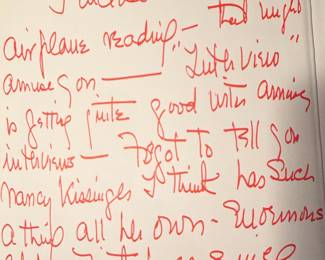 that might
airplane reading —
amuse you —— "Interview"
is getting quite good with amusing
interviews — Forgot to tell you
Nancy Kissinger I think has such
a thing all her own — Enormous